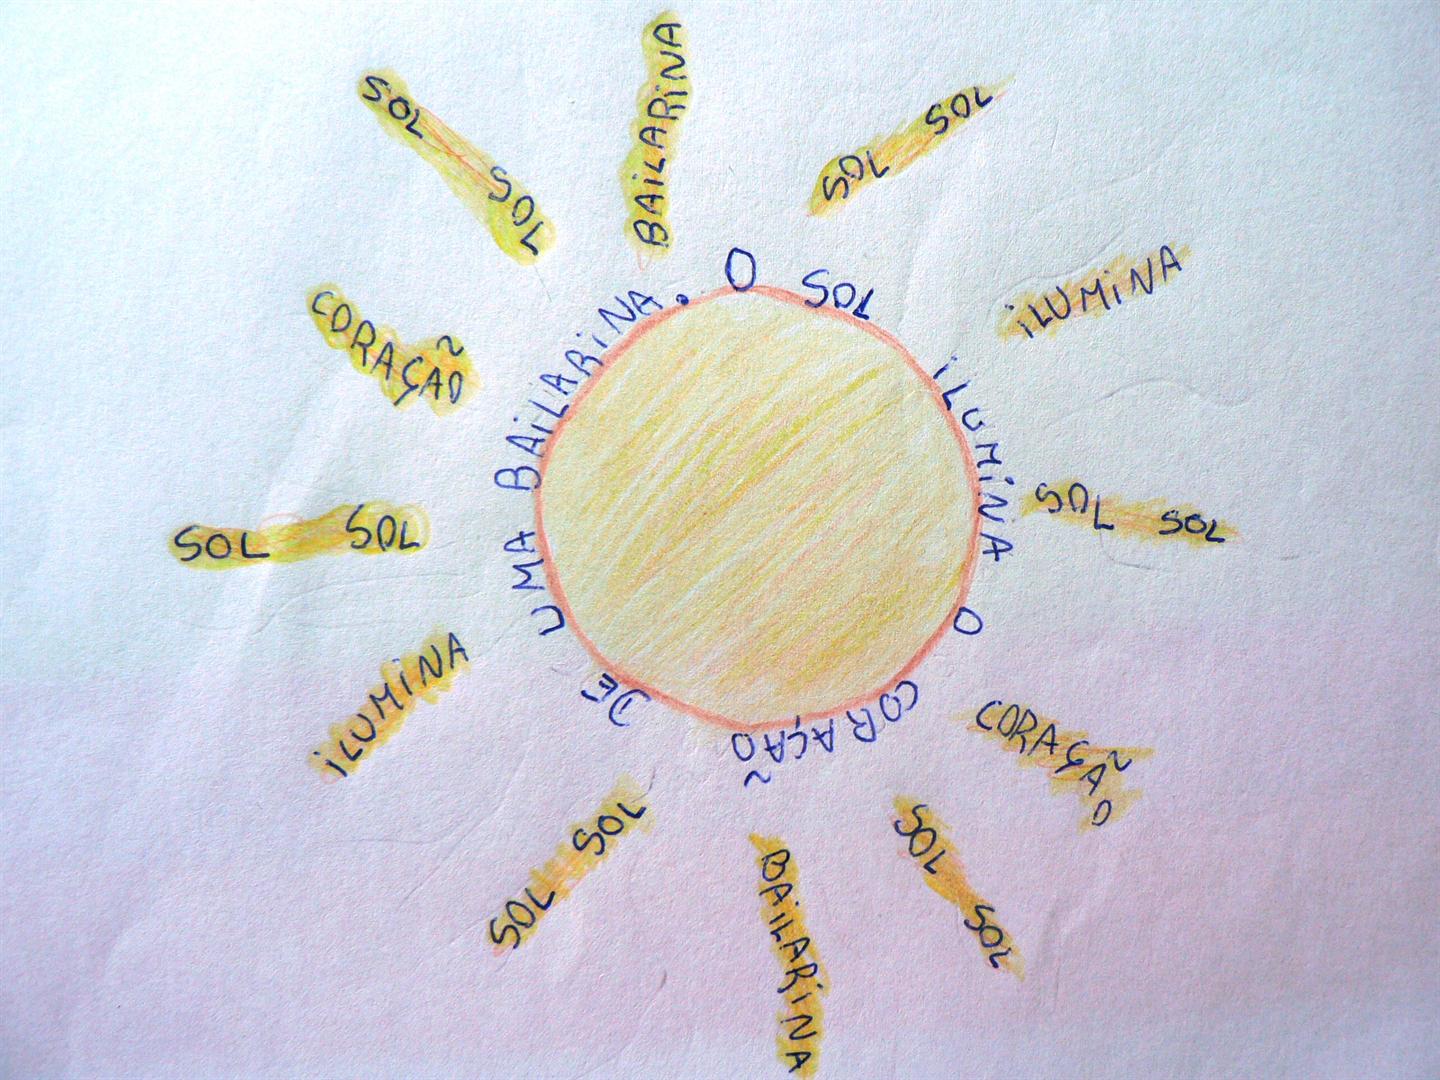 O SOL ILUMINA O CORAÇÃO DE UMA BAILARINA.
BAILARINA
SOL SOL
ILUMINA
SOL SOL
CORAÇÃO
SOL SOL
BAILARINA
SOL SOL
ILUMINA
SOL SOL
CORAÇÃO
SOL SOL